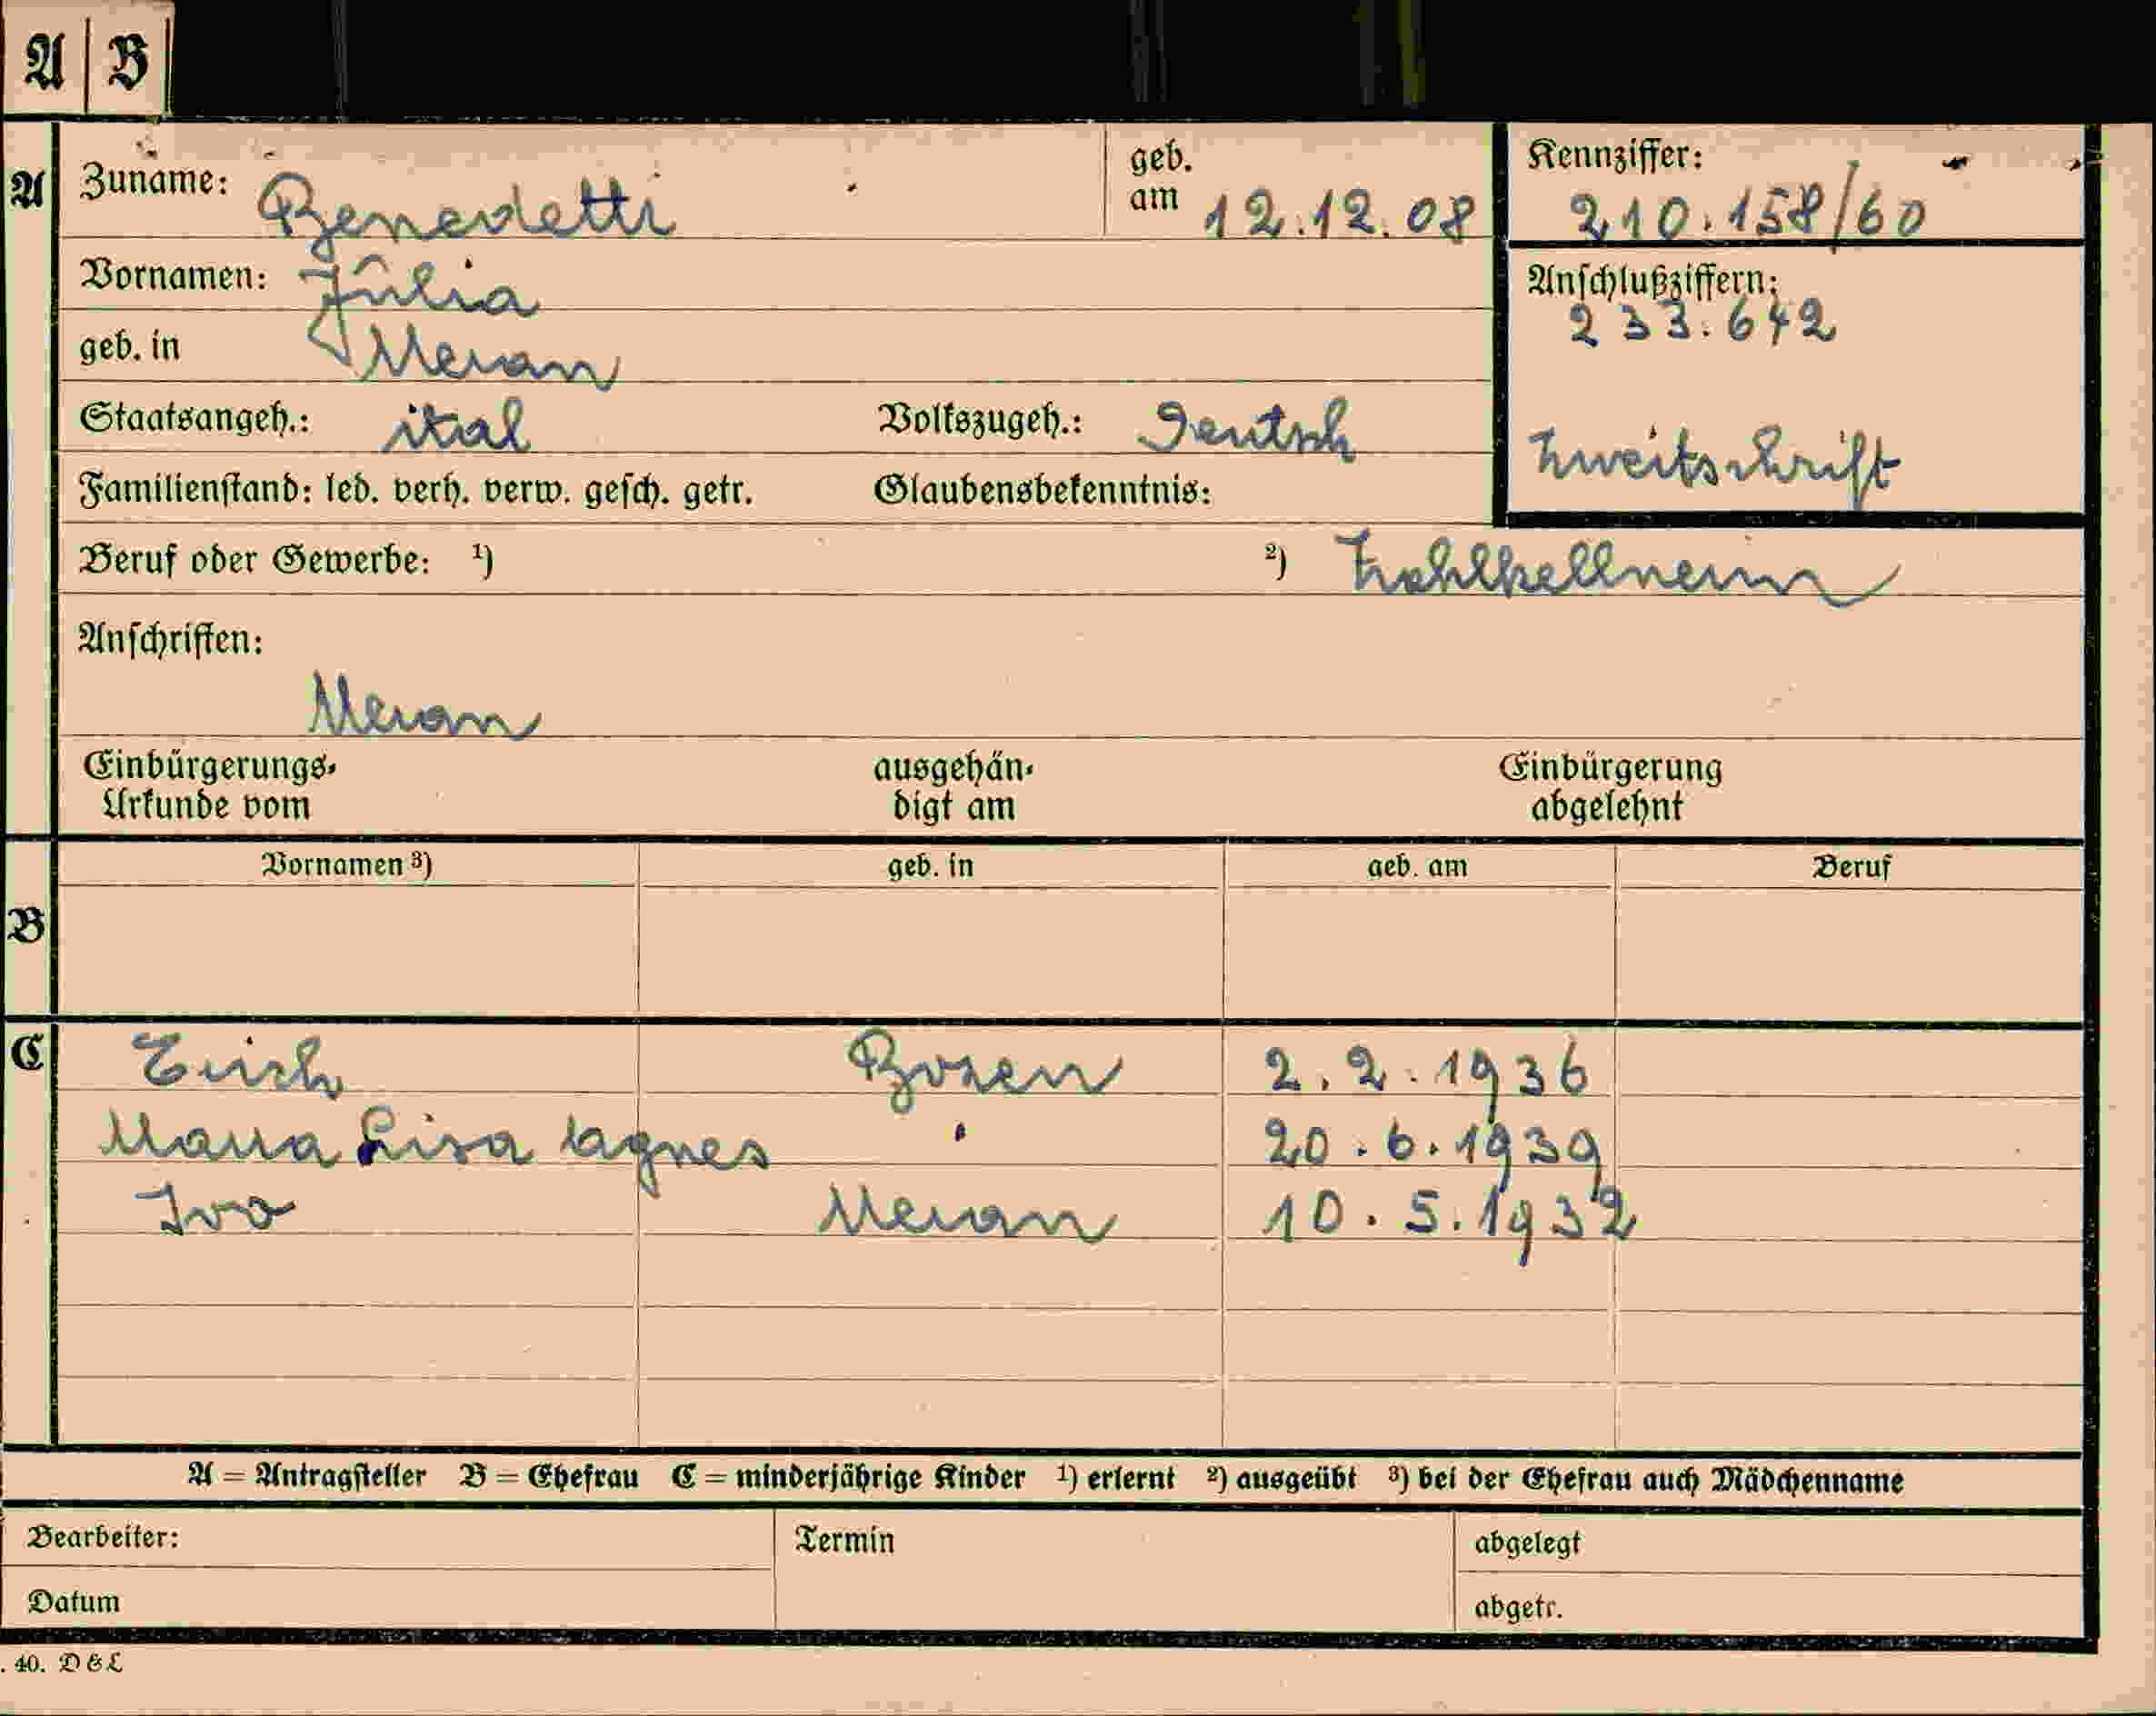 A B
A Zuname: Benedetti geb. am 12.12.08
Kennziffer: 210.158/60
Vornamen: Julia
Anschlußziffern: 233.642
geb. in Meran
Staatsangeh.: ital Volkszugeh.: Deutsch
Zweitschrift
Familienstand: led. verh. verw. gesch. getr. Glaubensbekenntnis:
Beruf oder Gewerbe: 1) 2) Zahlkellnerin
Anschriften:
Meran
Einbürgerungs- ausgehän- Einbürgerung
Urkunde vom digt am abgelehnt
Vornamen 3) geb. in geb. am Beruf
B
C Erich Bozen 2.2.1936
Maria Lisa Agnes " 20.6.1939
Ivo Meran 10.5.1932
A = Antragsteller B = Ehefrau C = minderjährige Kinder 1) erlernt 2) ausgeübt 3) bei der Ehefrau auch Mädchenname
Bearbeiter: Termin abgelegt
Datum abgetr.
. 40. D & L